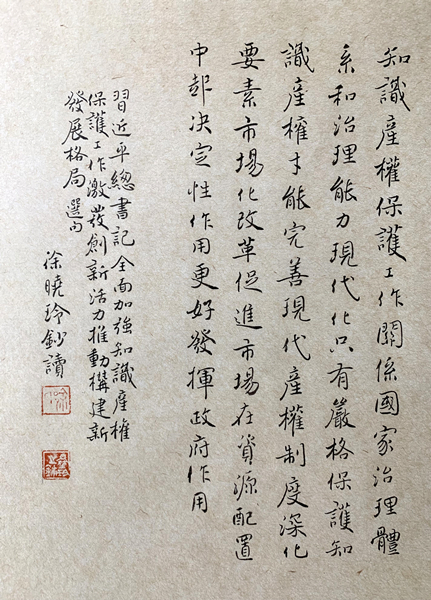 知識產權保護工作關係國家治理體
系和治理能力現代化只有嚴格保護知
識產權才能完善現代產權制度深化
要素市場化改革促進市場在資源配置
中起決定性作用更好發揮政府作用
習近平總書記全面加強知識產權
保護工作激發創新活力推動構建新
發展格局選句
徐曉玲鈔讀